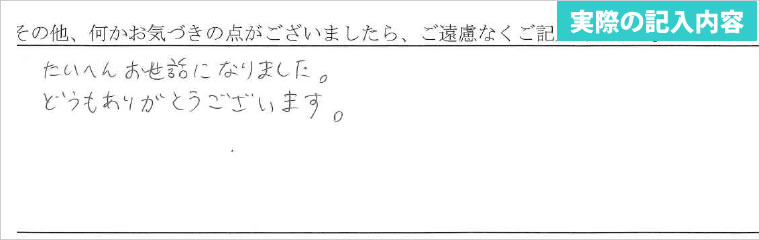 実際の記入内容
その他、何かお気づきの点がございましたら、ご遠慮なくご記
たいへんお世話になりました。
どうもありがとうございます。